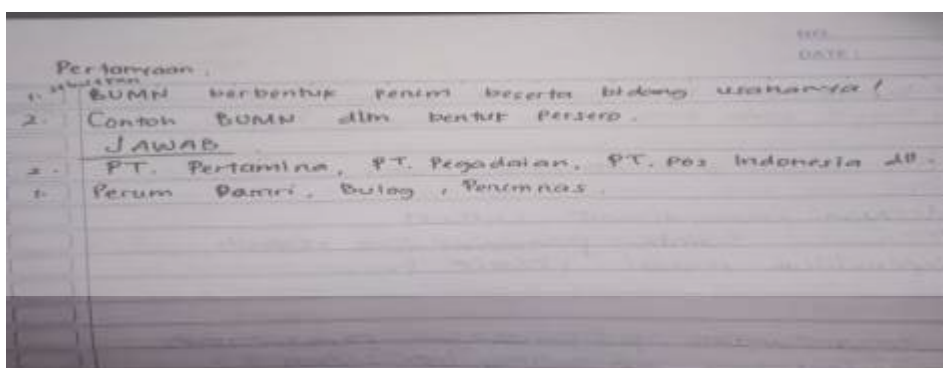 NO.
DATE :
Pertanyaan.
1. sebutkan BUMN berbentuk Perum beserta bidang usahanya!
2. Contoh BUMN dlm bentuk Persero.
JAWAB
2. PT. Pertamina, PT. Pegadaian, PT. Pos Indonesia dll.
1. Perum Damri, Bulog, Perumnas.